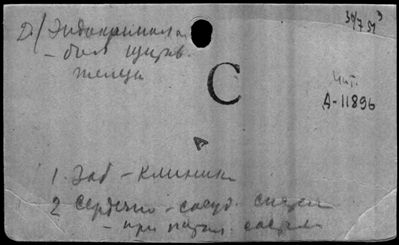 2/ Эндокринная
- бол. щитов.
железы
30/7 59 3
C
Шт.
А-11896
А
1. Заб - клиника
2 Сердечно - сосуд. систем
- при патол.